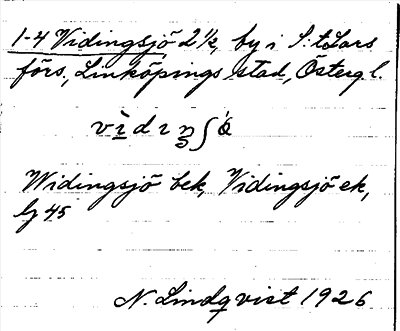 1-4 Vidingsjö, 2 ½, by i S:t Lars
förs., Linköpings stad, Östergl.
vìdıŋʃö́
Widingsjö bek, Vidingsjö ek,
lg 45
N. Lindqvist 1926